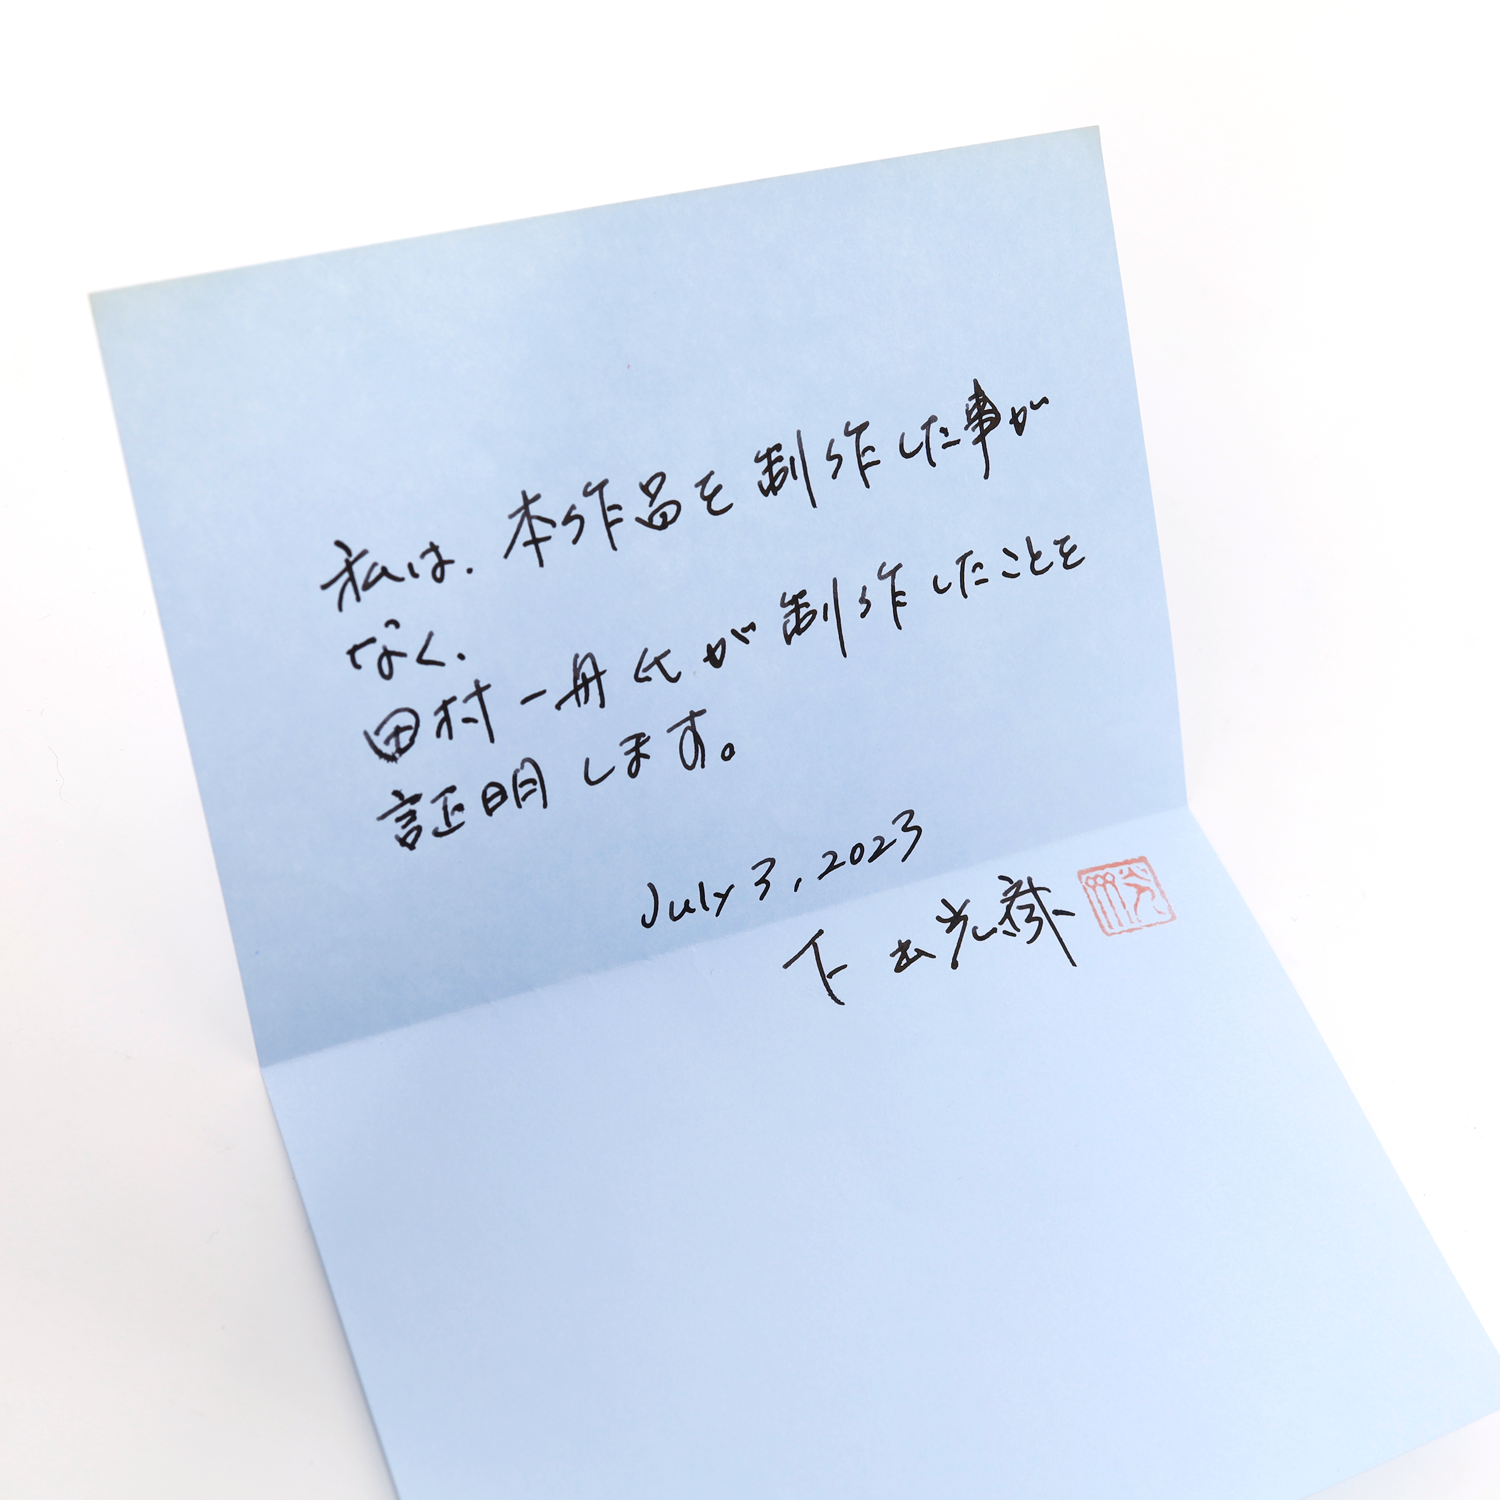 私は、本作品を制作した事が
なく、
田村一舟氏が制作したことを
証明します。
July 3, 2023
下出光